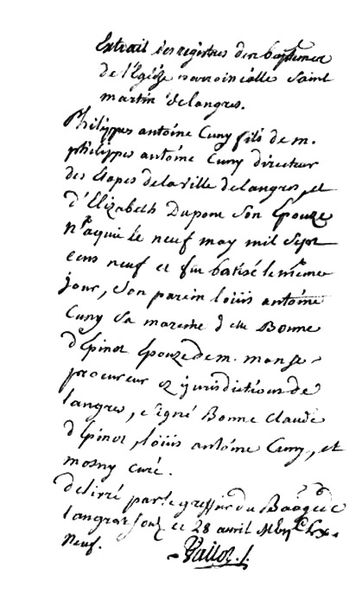 Extrait des registres des baptemes
de l'Eglize parroissialle Saint
martin de langres.
Philippes antoine Cuny fils de m.
philippes antoine Cuny directeur
des Etapes de la ville de langres, et
d'Elizabeth Dupont son Epouze
naquit le neuf may mil sept
cens neuf et fut batisé le meme
jour, son parein loüis antoine
Cuny sa mareine d elle Bonne
d'Epinot Epouze de m.
procureur ez jurisdictions de
langres, signé Bonne Claude
d'Epinot, loüis antoine Cuny, et
mosny curé.
delivré par le greffier du
langres ce 28 avril
neuf.